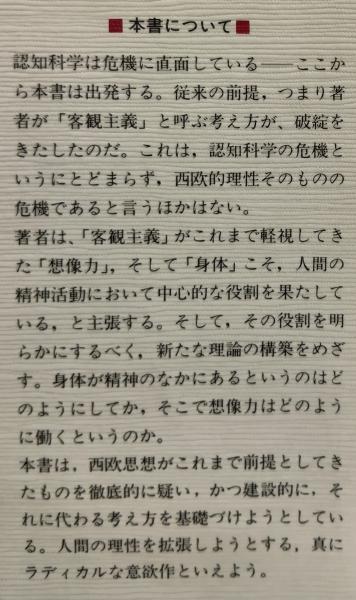 ■ 本書について ■
認知科学は危機に直面している――ここか
ら本書は出発する。従来の前提，つまり著
者が「客観主義」と呼ぶ考え方が、破綻を
きたしたのだ。これは，認知科学の危機と
いうにとどまらず，西欧的理性そのものの
危機であると言うほかはない。
著者は、「客観主義」がこれまで軽視してき
た「想像力」，そして「身体」こそ，人間の
精神活動において中心的な役割を果たして
いる，と主張する。そして，その役割を明
らかにするべく，新たな理論の構築をめざ
す。身体が精神のなかにあるというのはど
のようにしてか，そこで想像力はどのよう
に働くというのか。
本書は，西欧思想がこれまで前提としてき
たものを徹底的に疑い，かつ建設的に，そ
れに代わる考え方を基礎づけようとしてい
る。人間の理性を拡張しようとする，真に
ラディカルな意欲作といえよう。